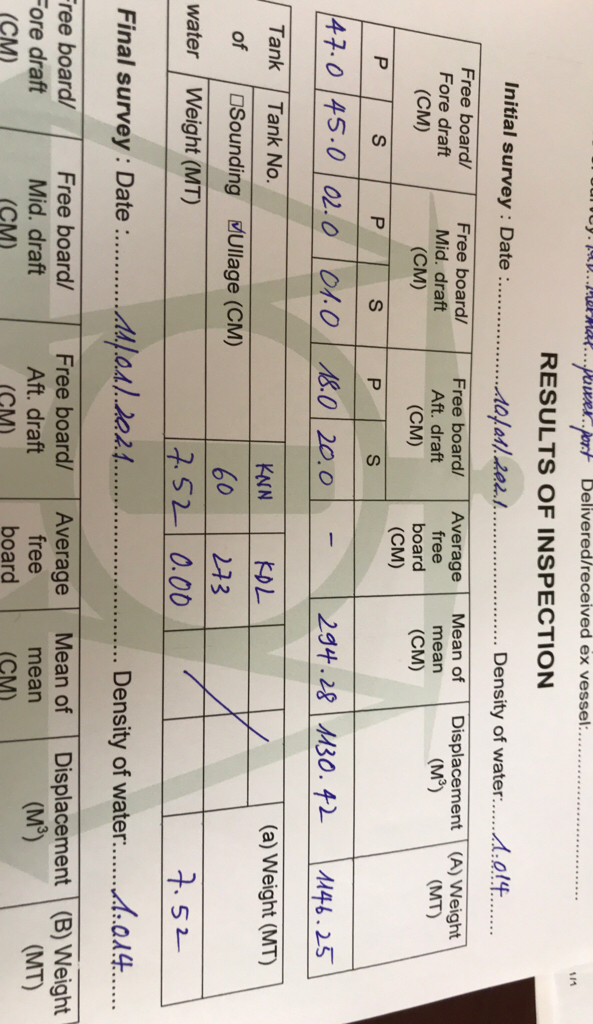 1/1
Delivered/received ex vessel:
RESULTS OF INSPECTION
Initial survey : Date : 10/01/2021 Density of water: 1.014
Free board/ Fore draft (CM) Free board/ Mid. draft (CM) Free board/ Aft. draft (CM) Average free board (CM) Mean of mean (CM) Displacement (M³) (A) Weight (MT)
P S P S P S
47.0 45.0 02.0 01.0 18.0 20.0 - 294.28 1130.42 1146.25
Tank of water Tank No. KNN KDL (a) Weight (MT)
☐Sounding ☑Ullage (CM) 60 273
Weight (MT) 7.52 0.00 7.52
Final survey : Date : 11/01/2021 Density of water: 1.014
Free board/ Fore draft (CM) Free board/ Mid. draft (CM) Free board/ Aft. draft (CM) Average free board (CM) Mean of mean (CM) Displacement (M³) (B) Weight (MT)